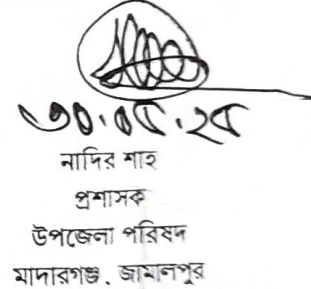 ৩০.০৫.২৫
নাদির শাহ
প্রশাসক
উপজেলা পরিষদ
মাদারগঞ্জ, জামালপুর